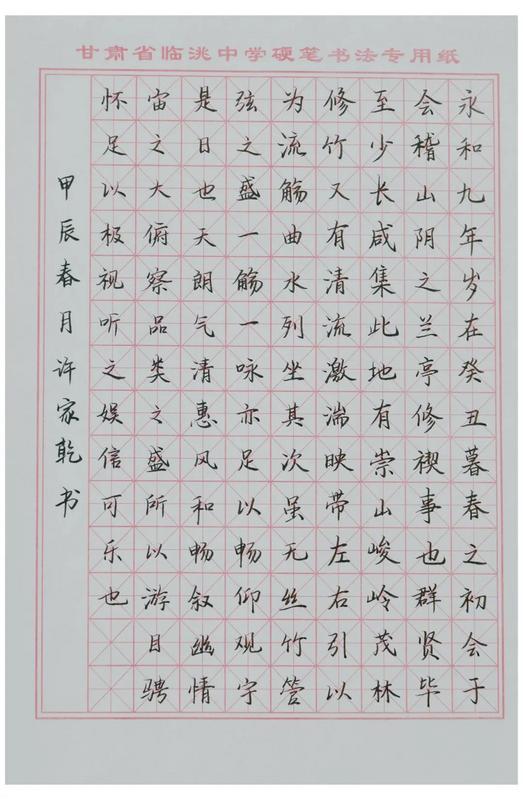 甘肃省临洮中学硬笔书法专用纸
永和九年岁在癸丑暮春之初会于
会稽山阴之兰亭修禊事也群贤毕
至少长咸集此地有崇山峻岭茂林
修竹又有清流激湍映带左右引以
为流觞曲水列坐其次虽无丝竹管
弦之盛一觞一咏亦足以畅仰观宇
是日也天朗气清惠风和畅叙幽情
宙之大俯察品类之盛所以游目骋
怀足以极视听之娱信可乐也
甲辰春月许家乾书